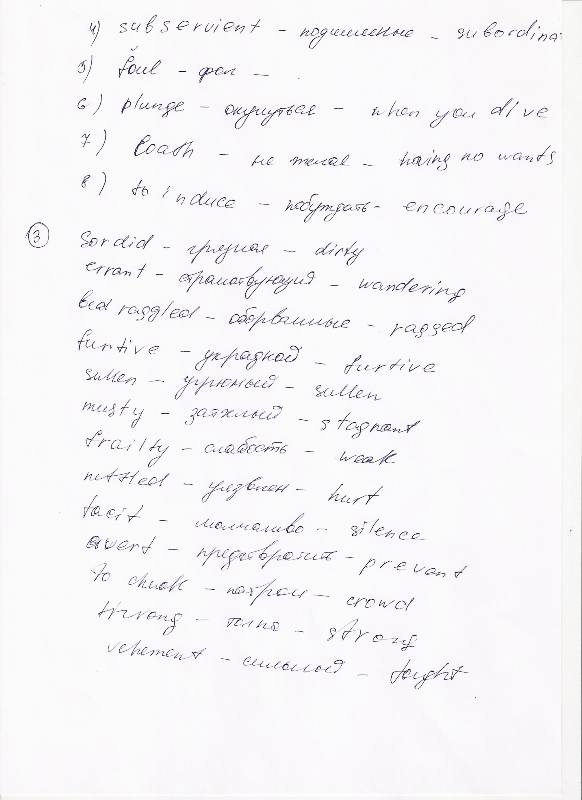 4) subservient - подчиненные - subordina
5) foul - фол -
6) plunge - окунуться - when you dive
7) Loath - не желая - having no wants
8) to induce - побуждать - encourage
3 Sordid - грязная - dirty
errant - странствующий - wandering
bed raggled - оборванные - ragged
furtive - украдкой - furtive
sullen - угрюмый - sullen
musty - затхлый - stagnant
frailty - слабость - weak
nettled - уязвлен - hurt
tacit - молчаливо - silence
avert - предотвратить - prevent
to - crowd
throng - толпа - strong
vehement - сильный -